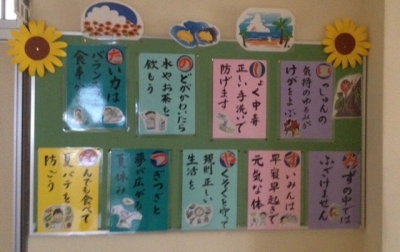 たい力は
バランス
食事
のどがかわいたら
水やお茶を
飲もう
しょく中毒
正しい手洗いで
防げます
いっしゅんの
気持のゆるみが
けがをよぶ
なんでも食べて
夏バテを
防ごう
つぎつぎと
夢が広がる
夏休み
やくそくを守って
規則正しい
生活を
すいみんは
早寝早起きで
元気な体
みずの中では
ふざけません